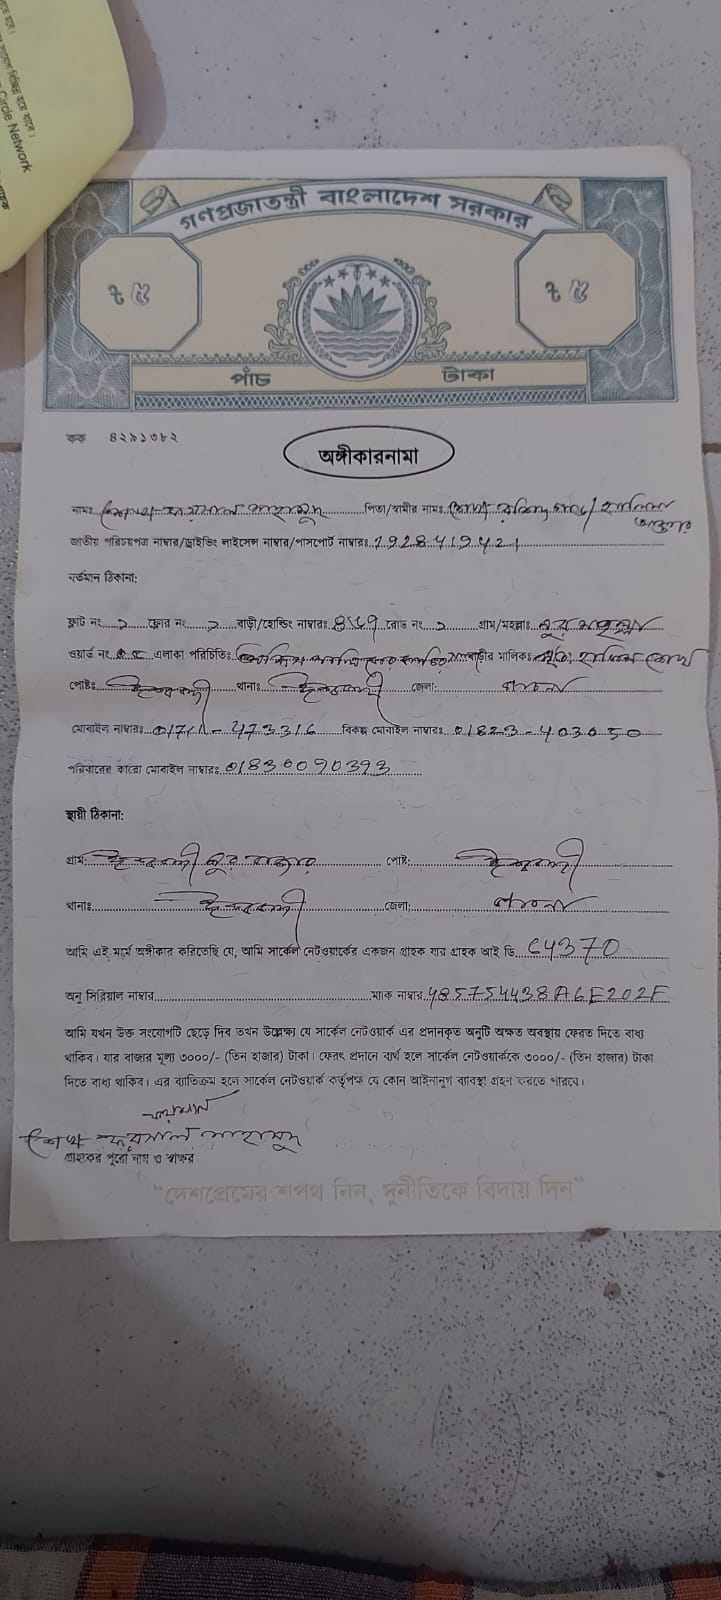 Circle Network
গণপ্রজাতন্ত্রী বাংলাদেশ সরকার
৳ ৫ ৳ ৫
পাঁচ টাকা
কক ৪২৯১৩৮২
অঙ্গীকারনামা
নামঃ শেখ ফয়সাল মাহামুদ পিতা/স্বামীর নামঃ
জাতীয় পরিচয়পত্র নাম্বার/ড্রাইভিং লাইসেন্স নাম্বার/পাসপোর্ট নাম্বারঃ
বর্তমান ঠিকানা:
ফ্লাট নং ফ্লোর নং বাড়ী/হোল্ডিং নাম্বারঃ রোড নং গ্রাম/মহল্লাঃ নূর মহল্লা
ওয়ার্ড নং এলাকা পরিচিতিঃ বাড়ীর মালিকঃ
পোষ্টঃ ঈশ্বরদী থানাঃ ঈশ্বরদী জেলা: পাবনা
মোবাইল নাম্বারঃ বিকল্প মোবাইল নাম্বারঃ 01823-403050
পরিবারের কারো মোবাইল নাম্বারঃ 01830090393
স্থায়ী ঠিকানা:
গ্রাম: ঈশ্বরদী পোষ্ট: ঈশ্বরদী
থানাঃ ঈশ্বরদী জেলা: পাবনা
আমি এই মর্মে অঙ্গীকার করিতেছি যে, আমি সার্কেল নেটওয়ার্কের একজন গ্রাহক যার গ্রাহক আই ডি. C4370
অনু সিরিয়াল নাম্বার ম্যাক নাম্বার 485754438A6E202F
আমি যখন উক্ত সংযোগটি ছেড়ে দিব তখন উল্লেক্ষ্য যে সার্কেল নেটওয়ার্ক এর প্রদানকৃত অনুটি অক্ষত অবস্থায় ফেরত দিতে বাধ্য
থাকিব। যার বাজার মূল্য ৩০০০/- (তিন হাজার) টাকা। ফেরৎ প্রদানে ব্যর্থ হলে সার্কেল নেটওয়ার্ককে ৩০০০/- (তিন হাজার) টাকা
দিতে বাধ্য থাকিব। এর ব্যতিক্রম হলে সার্কেল নেটওয়ার্ক কর্তৃপক্ষ যে কোন আইনানুগ ব্যবস্থা গ্রহন করতে পারবে।
ফয়সাল
শেখ ফয়সাল মাহামুদ
গ্রাহকের পুরো নাম ও স্বাক্ষর
"দেশপ্রেমের শপথ নিন, দুর্নীতিকে বিদায় দিন"